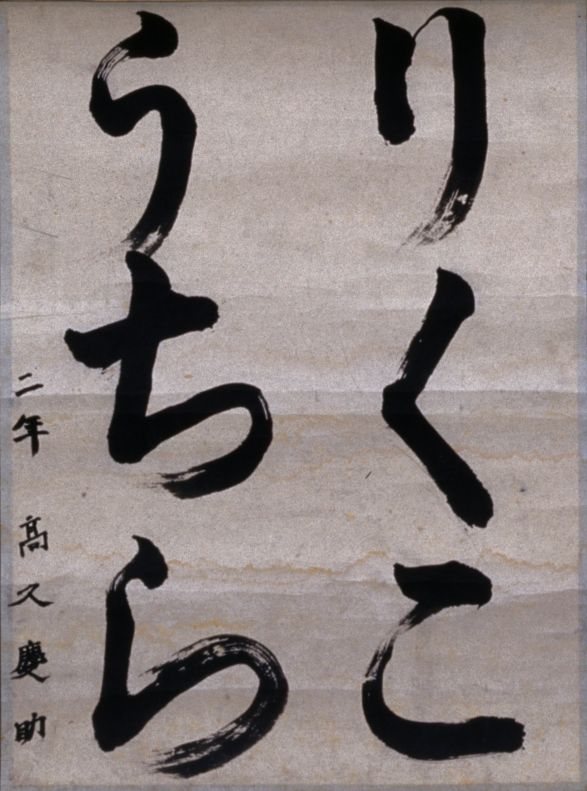 りくこ
うちら
二年 高久慶助